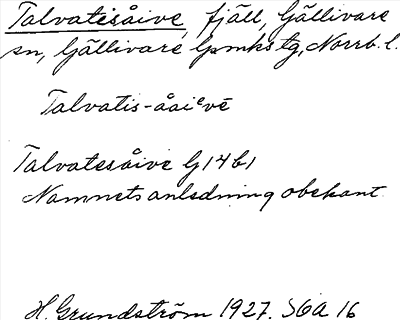 Talvatesåive, fjäll, Gällivare
sn, Gällivare lpmks tg, Norrb. l.
Talvatis-åaiᵉvē
Talvatesåive G14b1
Namnets anledning obekant
H. Grundström 1927. SGA 16